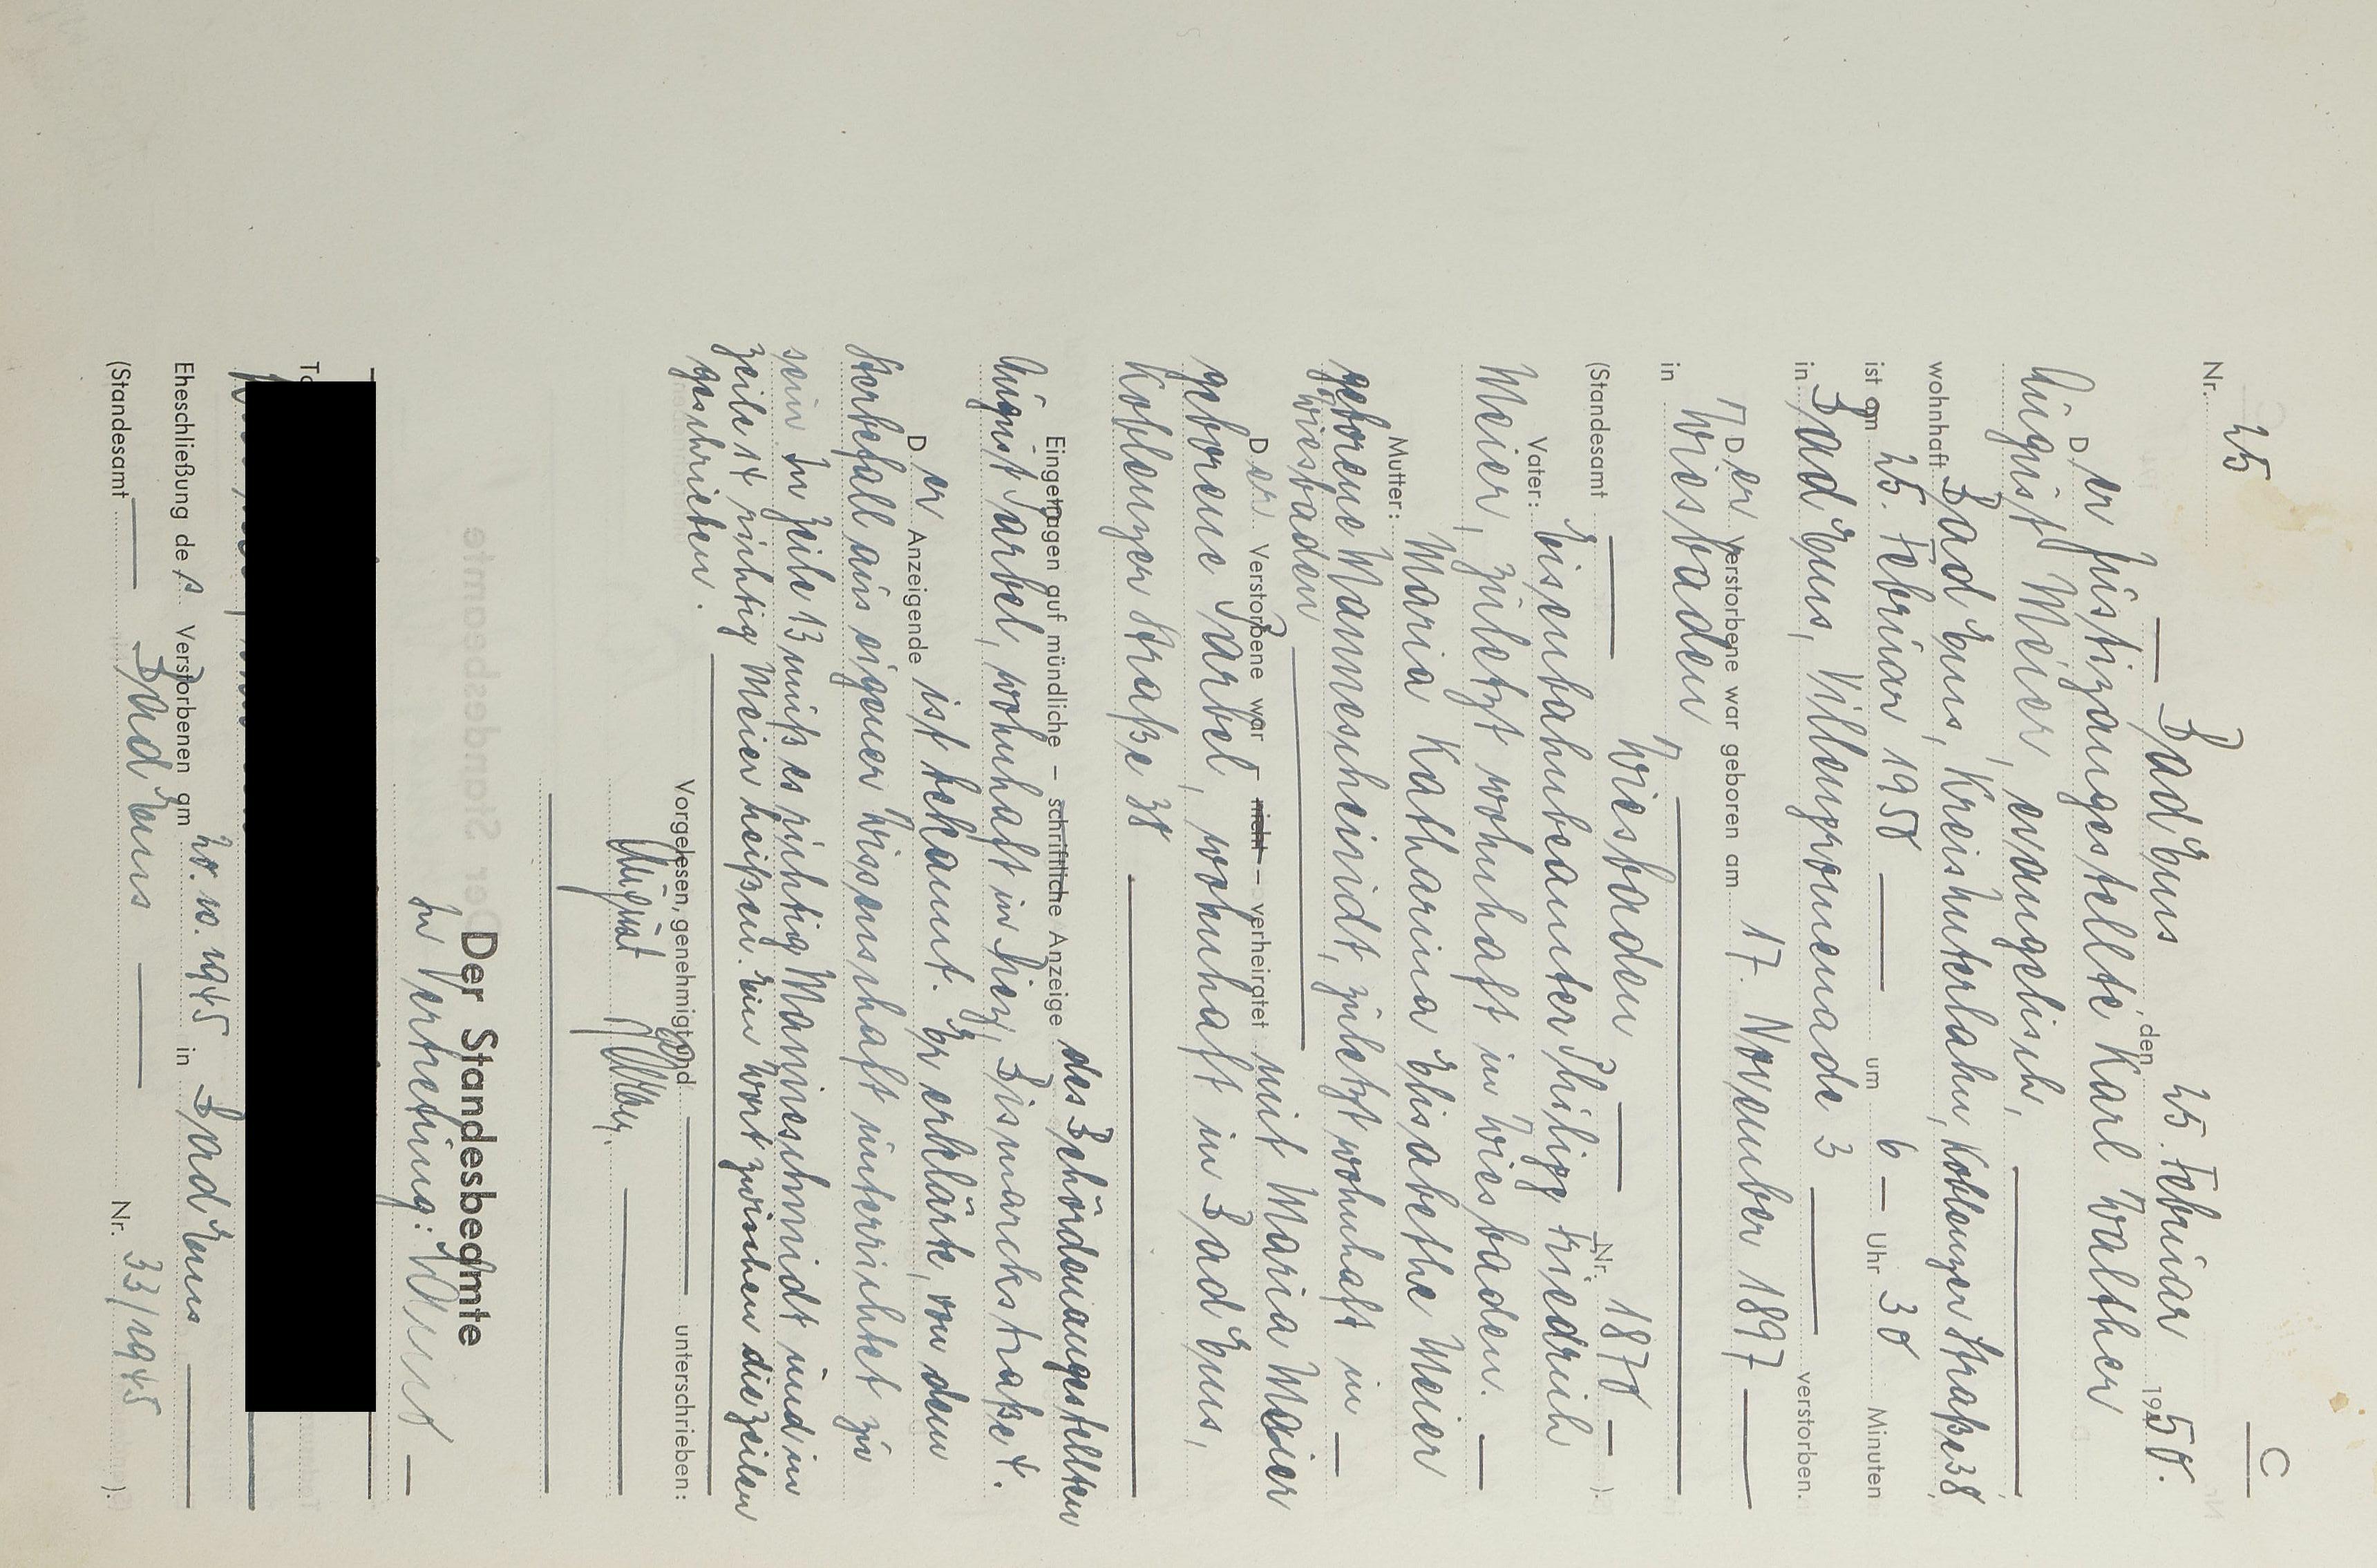 C
Nr. 25
Bad Ems, den 25. Februar 1950.
Der Justizangestellte Karl Walther
August Meier, evangelisch,
wohnhaft Bad Ems, Kreis Unterlahn, Koblenzer Straße 38,
ist am 25. Februar 1950 um 6 Uhr 30 Minuten
in Bad Ems, Villenpromenade 3 verstorben.
Der Verstorbene war geboren am 17. November 1897
in Wiesbaden
(Standesamt Wiesbaden Nr. 1870).
Vater: Eisenbahnbeamter Philipp Friedrich
Meier, zuletzt wohnhaft in Wiesbaden.
Mutter: Maria Katharina Elisabethe Meier
geborene Mannescheinidt, zuletzt wohnhaft in
Wiesbaden
Der Verstorbene war – nicht – verheiratet mit Maria Maier
geborene Sarbel, wohnhaft in Bad Ems,
Koblenzer Straße 38
Eingetragen auf mündliche – schriftliche Anzeige des Behördenangestellten
August Sarbel, wohnhaft in hier, Bismarckstraße 4.
Der Anzeigende ist bekannt. Er erklärte, von dem
Sterbefall aus eigener Wissenschaft unterrichtet zu
sein. In Zeile 13 muß es richtig Manneschmidt und in
Zeile 14 richtig Meier heißen. Ein Wort zwischen die Zeilen
geschrieben.
Vorgelesen, genehmigt und unterschrieben:
August
Der Standesbeamte
In Vertretung:
Eheschließung des Verstorbenen am 20. 10. 1945 in Bad Ems
(Standesamt Bad Ems Nr. 33/1945).